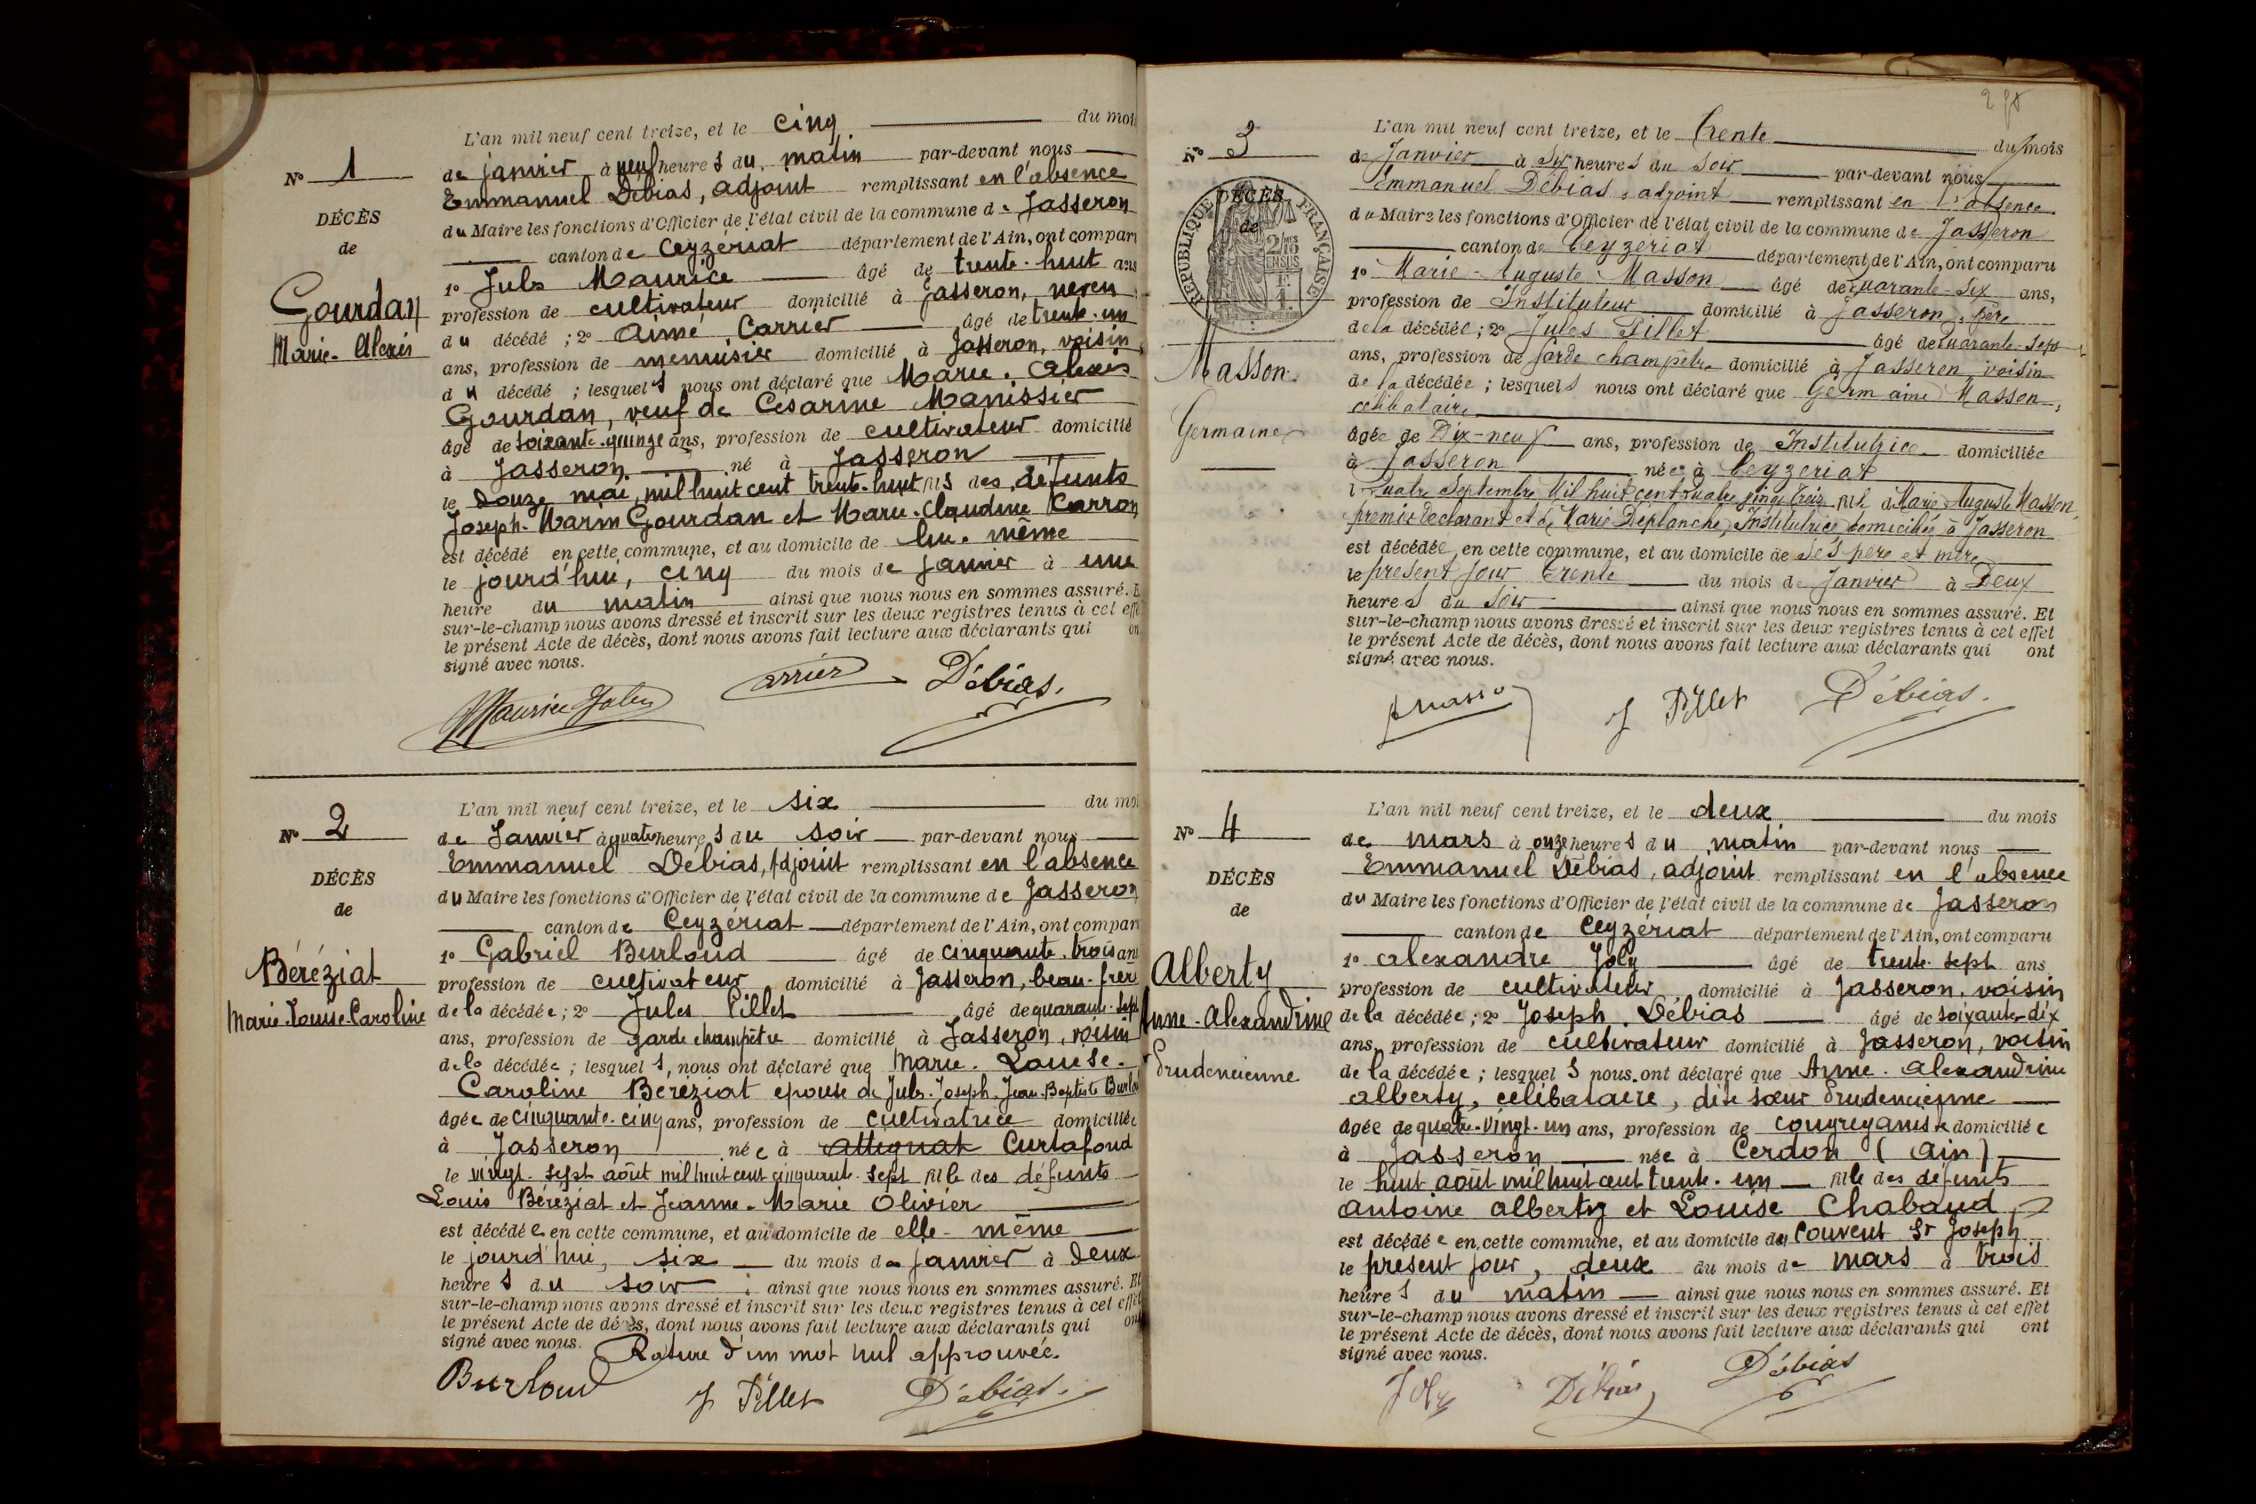 N° 1
DÉCÈS
de
Gourdan
Marie-Alexis
L'an mil neuf cent treize, et le cinq du moi
de janvier à neuf heures du matin par-devant nous
Emmanuel Débias, adjoint remplissant en l'absence
du Maire les fonctions d'Officier de l'état civil de la commune de Jasseron
canton de Ceyzériat département de l'Ain, ont compar
1° Jules Maurice âgé de trente-huit ans
profession de cultivateur domicilié à Jasseron, neveu
du décédé ; 2° Aimé Carrier âgé de trente-un
ans, profession de menuisier domicilié à Jasseron, voisin
du décédé ; lesquels nous ont déclaré que Marie-Alexis
Gourdan, veuf de Césarine Manissier
âgé de soixante-quinze ans, profession de cultivateur domicilié
à Jasseron né à Jasseron
le douze mai mil huit cent trente-huit fils des défunts
Joseph-Marin Gourdan et Marie-Claudine Carron
est décédé en cette commune, et au domicile de lui-même
le jourd'hui, cinq du mois de janvier à une
heure du matin ainsi que nous nous en sommes assuré. E
sur-le-champ nous avons dressé et inscrit sur les deux registres tenus à cet effe
le présent Acte de décès, dont nous avons fait lecture aux déclarants qui on
signé avec nous.
Maurice Jules Carrier Débias.
N° 2
DÉCÈS
de
Béréziat
Marie-Louise-Caroline
L'an mil neuf cent treize, et le six du moi
de Janvier à quatre heures du soir par-devant nous
Emmanuel Débias, Adjoint remplissant en l'absence
du Maire les fonctions d'Officier de l'état civil de la commune de Jasseron
canton de Ceyzériat département de l'Ain, ont compar
1° Gabriel Burloud âgé de cinquante-trois ans
profession de cultivateur domicilié à Jasseron, beau-frère
de la décédée ; 2° Jules Pillet âgé de quarante-sept
ans, profession de garde champêtre domicilié à Jasseron, voisin
de la décédée ; lesquels nous ont déclaré que Marie-Louise-
Caroline Béréziat épouse de Jules-Joseph-Jean-Baptiste Burlou
âgée de cinquante-cinq ans, profession de cultivatrice domiciliée
à Jasseron née à Attignat Curtafond
le vingt-sept août mil huit cent cinquante-sept fille des défunts
Louis Béréziat et Jeanne-Marie Olivier
est décédée en cette commune, et au domicile de elle-même
le jourd'hui, six du mois de janvier à deux
heures du soir ainsi que nous nous en sommes assuré. Et
sur-le-champ nous avons dressé et inscrit sur les deux registres tenus à cet effet
le présent Acte de décès, dont nous avons fait lecture aux déclarants qui ont
signé avec nous. Rature d'un mot nul approuvée.
Burloud J Pillet Débias.
N° 3
DÉCÈS
de
RÉPUBLIQUE FRANÇAISE
2/10 EN SUS
Masson
Germaine
L'an mil neuf cent treize, et le trente du mois
de Janvier à six heures du soir par-devant nous
Emmanuel Débias, adjoint remplissant en l'absence
du Maire les fonctions d'Officier de l'état civil de la commune de Jasseron
canton de Ceyzeriat département de l'Ain, ont comparu
1° Marie-Auguste Masson âgé de quarante-six ans,
profession de Instituteur domicilié à Jasseron, père
de la décédée ; 2° Jules Pillet âgé de quarante-sept
ans, profession de garde champêtre domicilié à Jasseron voisin
de la décédée ; lesquels nous ont déclaré que Germaine Masson,
célibataire
âgée de Dix-neuf ans, profession de Institutrice domiciliée
à Jasseron née à Ceyzeriat
l quatre Septembre Mil huit cent quatre vingt treize fille de Marie Auguste Masson,
premier déclarant et de Marie Déplanche, Institutrice domiciliée à Jasseron
est décédée en cette commune, et au domicile de ses père et mère
le présent jour trente du mois de Janvier à Deux
heures du soir ainsi que nous nous en sommes assuré. Et
sur-le-champ nous avons dressé et inscrit sur les deux registres tenus à cet effet
le présent Acte de décès, dont nous avons fait lecture aux déclarants qui ont
signé avec nous.
Masso J Pillet Débias.
N° 4
DÉCÈS
de
Alberty
Anne-Alexandrine
Prudencienne
L'an mil neuf cent treize, et le deux du mois
de mars à onze heures du matin par-devant nous
Emmanuel Débias, adjoint remplissant en l'absence
du Maire les fonctions d'Officier de l'état civil de la commune de Jasseron
canton de Ceyzériat département de l'Ain, ont comparu
1° Alexandre Joly âgé de trente-sept ans
profession de cultivateur domicilié à Jasseron, voisin
de la décédée ; 2° Joseph Débias âgé de soixante-dix
ans, profession de cultivateur domicilié à Jasseron, voisin
de la décédée ; lesquels nous ont déclaré que Anne-Alexandrine
Alberty, célibataire, dite sœur Prudencienne
âgée de quatre-vingt-un ans, profession de congréganiste domiciliée
à Jasseron née à Cerdon (Ain)
le huit août mil huit cent trente-un fille des défunts
Antoine Alberty et Louise Chabaud
est décédée en cette commune, et au domicile du Couvent St Joseph
le présent jour, deux du mois de mars à trois
heures du matin ainsi que nous nous en sommes assuré. Et
sur-le-champ nous avons dressé et inscrit sur les deux registres tenus à cet effet
le présent Acte de décès, dont nous avons fait lecture aux déclarants qui ont
signé avec nous.
Joly Débias Débias